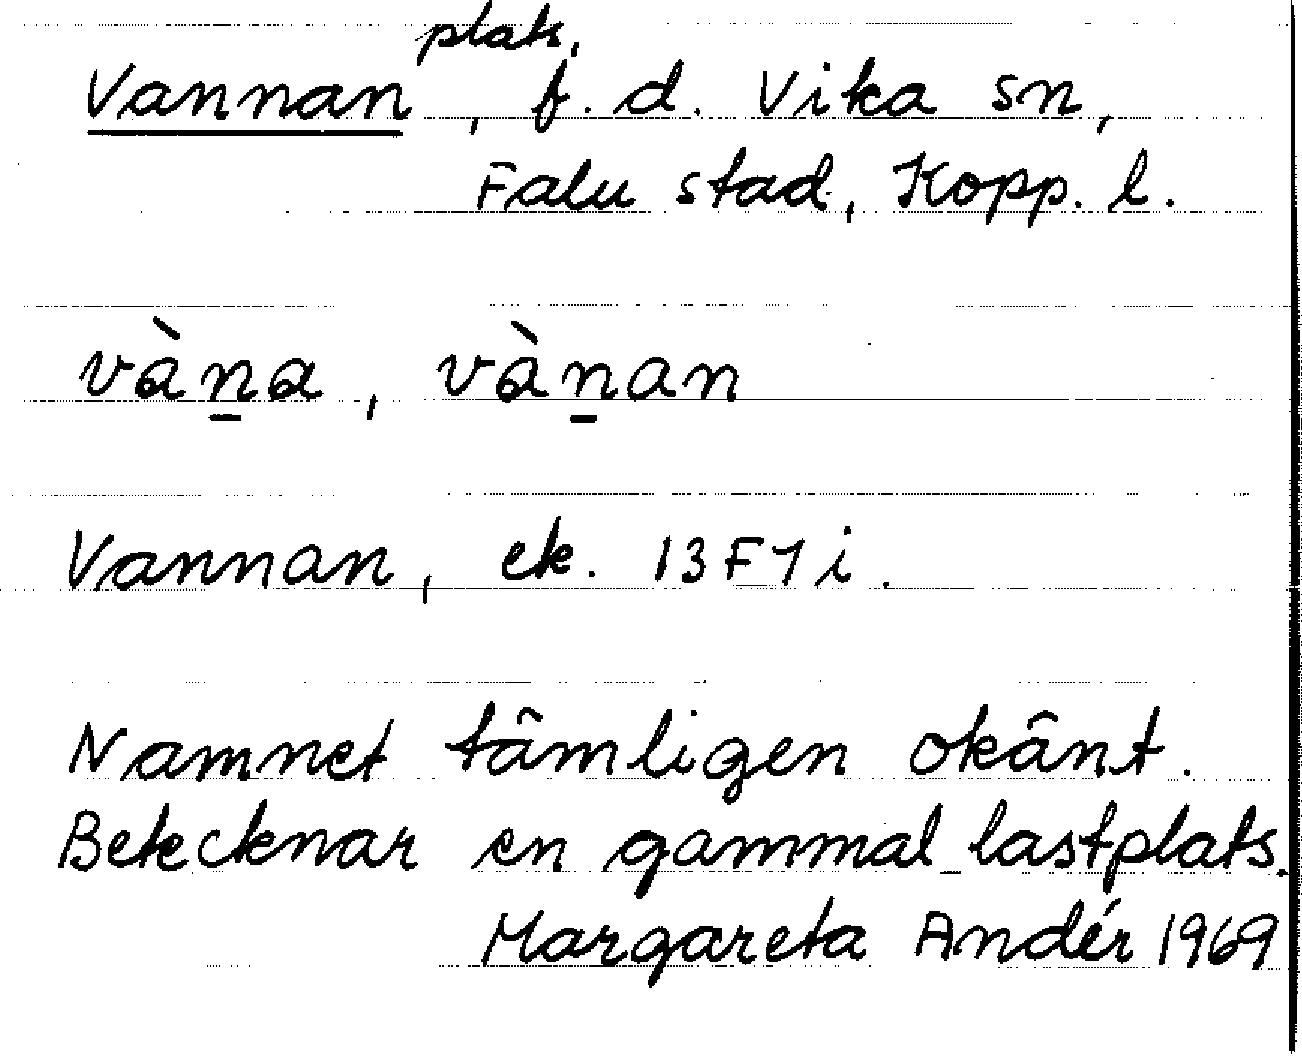 plats,
Vannan, f. d. Vika sn,
Falu stad, Kopp. l.
vàn̲a, vàn̲an
Vannan, ek. 13F1i.
Namnet tämligen okänt.
Betecknar en gammal lastplats.
Margareta Andér 1969